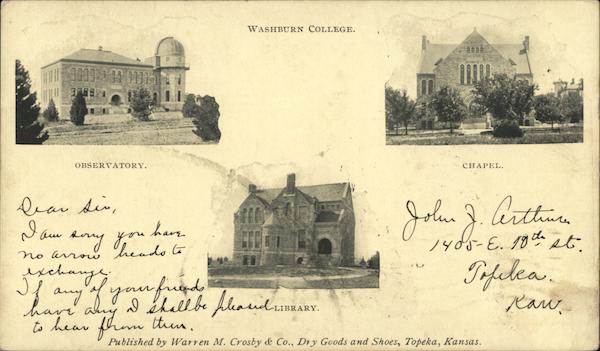 WASHBURN COLLEGE.
OBSERVATORY.
CHAPEL.
Dear Sir,
I am sorry you have
no arrow heads to
exchange.
If any of your friends
have any I shall be pleased
to hear from them.
LIBRARY.
John J. Arthur
1405-E. 10th st.
Topeka.
Kan.
Published by Warren M. Crosby & Co., Dry Goods and Shoes, Topeka, Kansas.